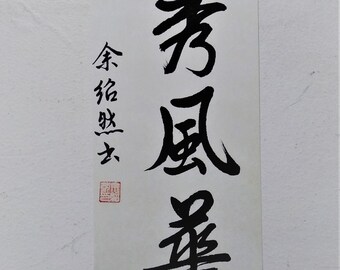 秀風華
余紹然书